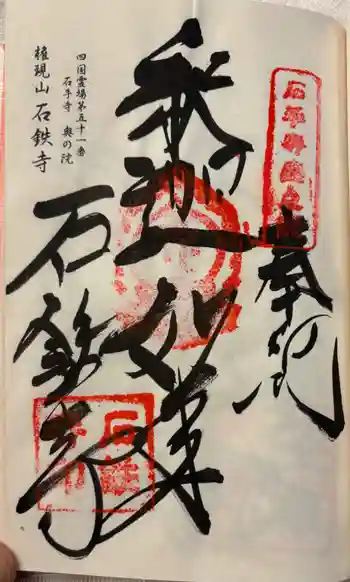 奉納
釈迦如来
石鉄寺
四国霊場第五十一番
石手寺 奥の院
権現山 石鉄寺
石手寺奥之院
石鉄寺